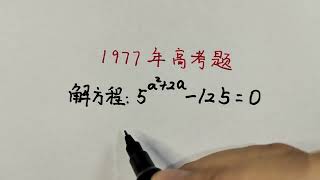 1977年高考题
解方程: 5^{a²+2a} - 125 = 0